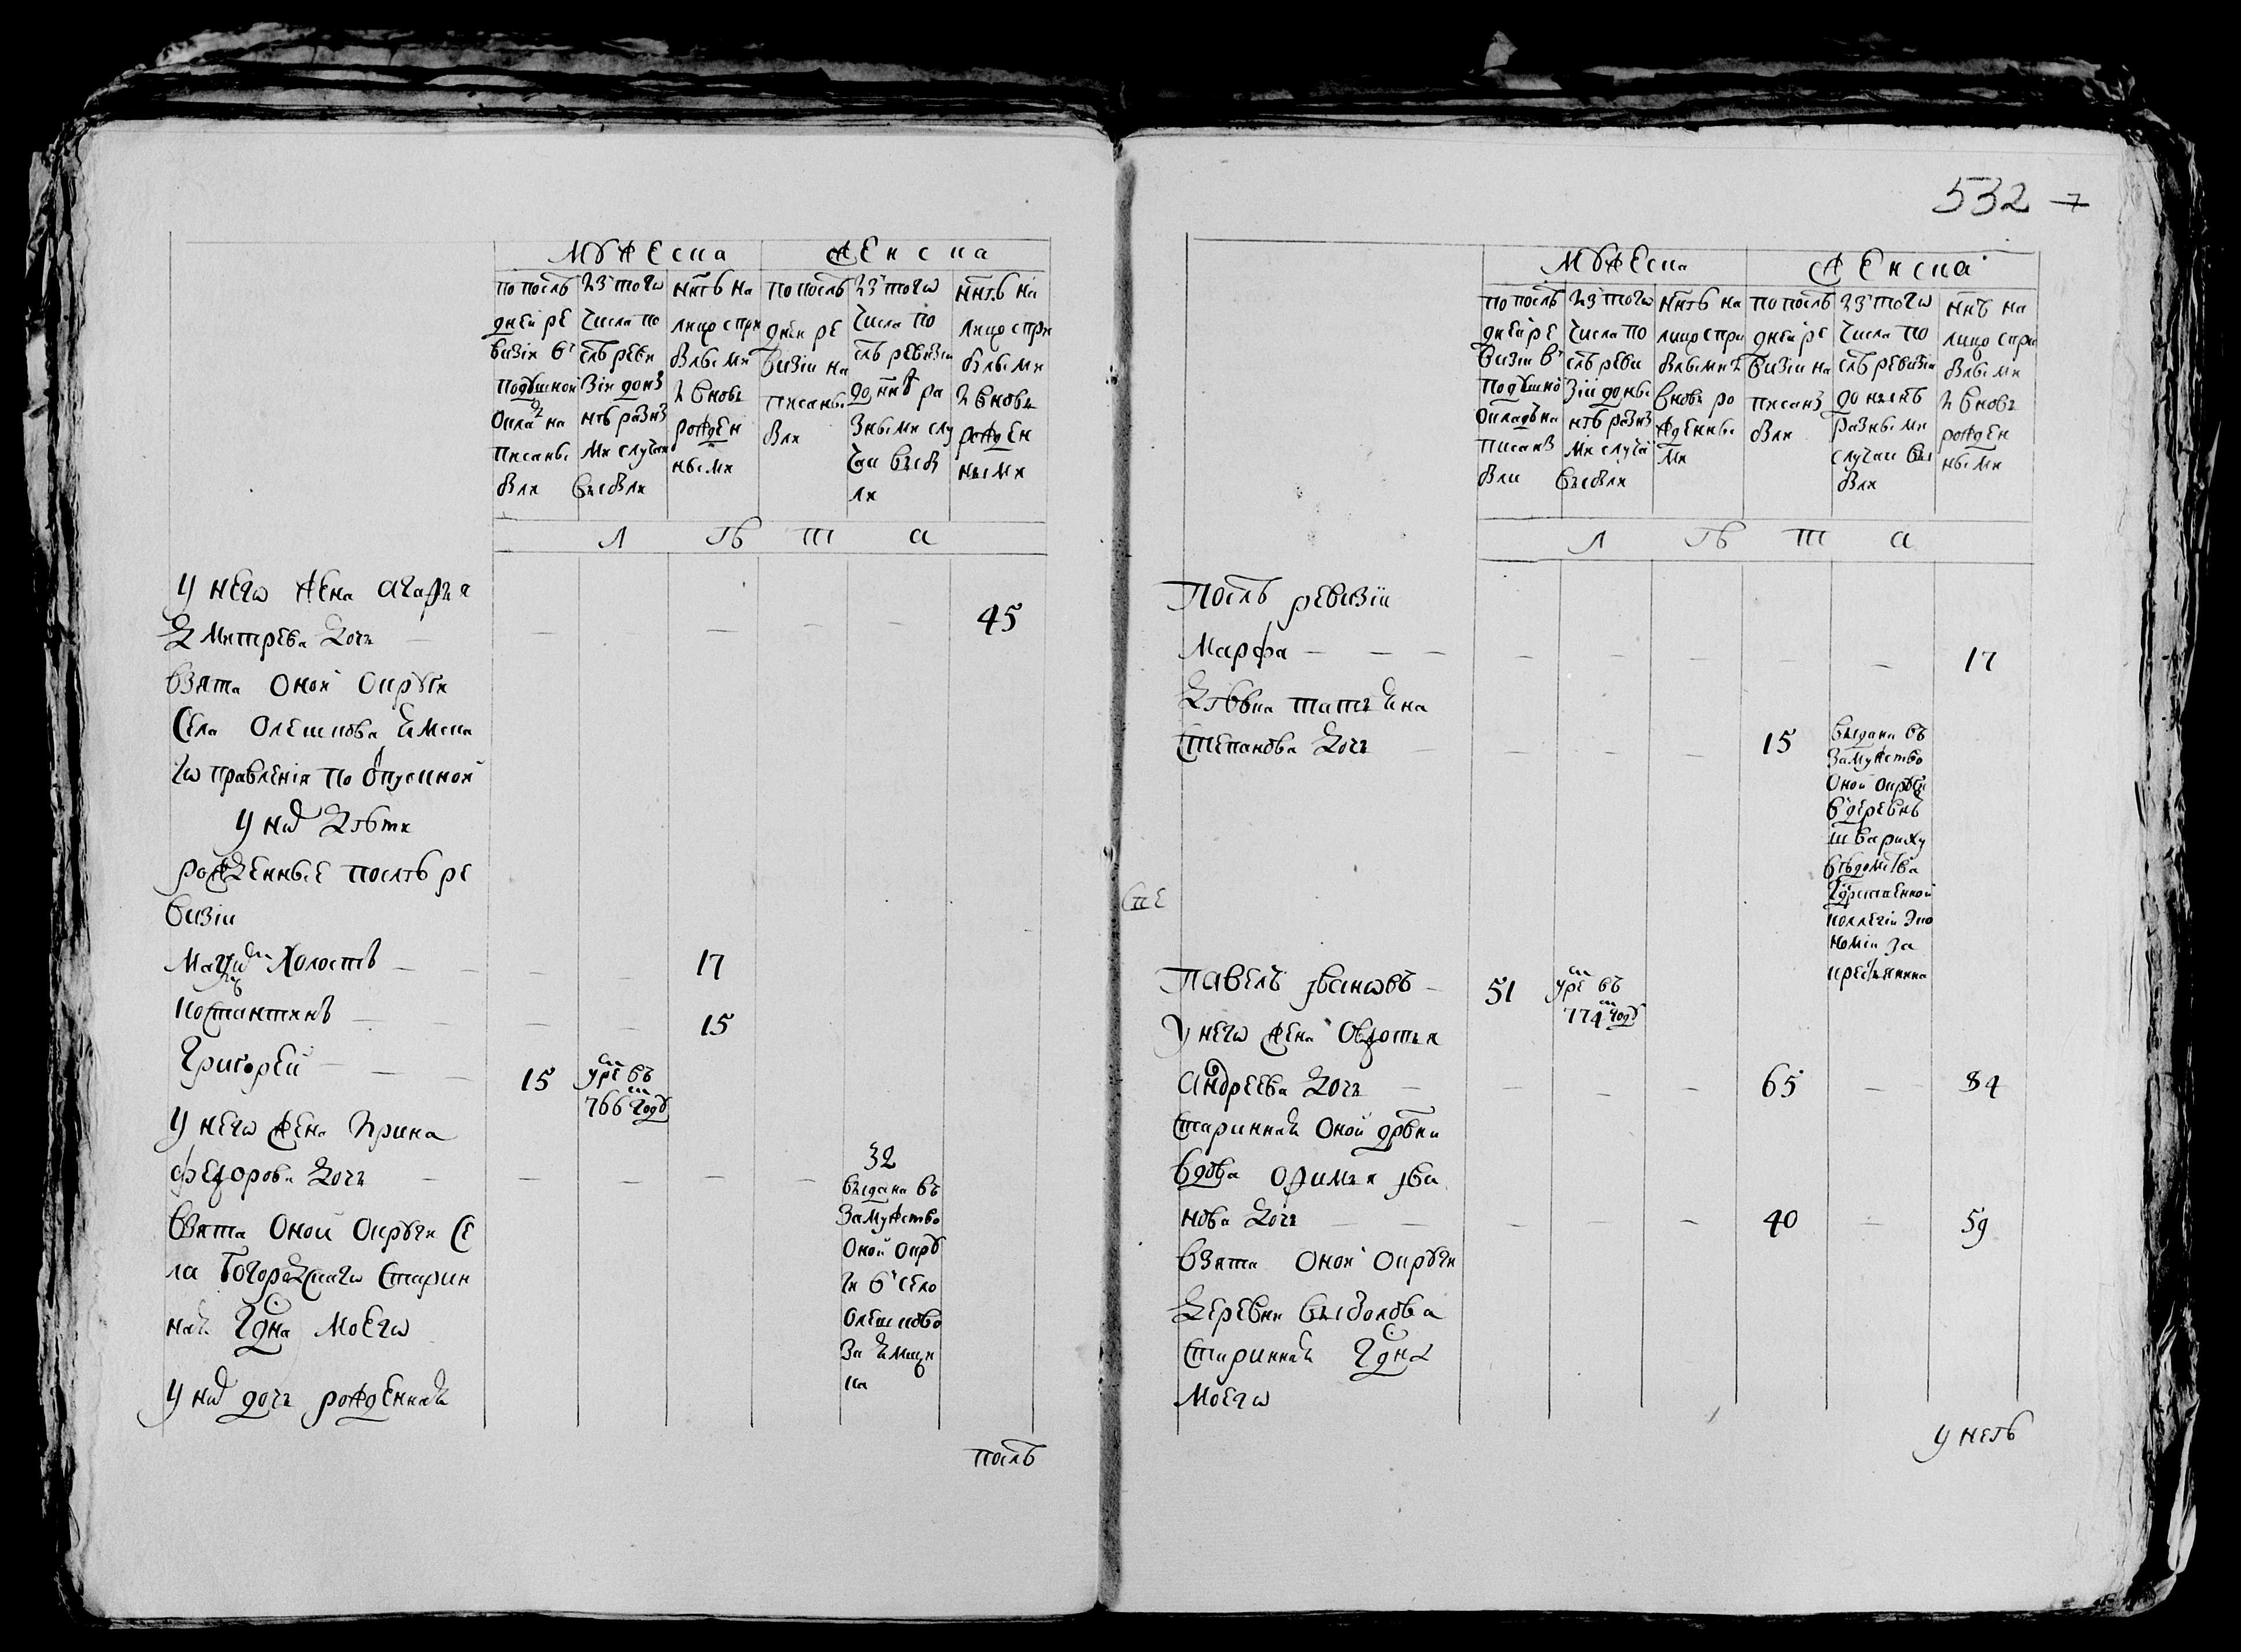 мужеска женска
по послѣ
дней ре
визіи в
подушной
окла на
писаны
были
из того
числа по
слѣ реви
зіи до нынѣ разны
ми случаи
выбыли
ннѣ на
лицо с при
былыми
и вновь
рожден
ными
по послѣ
дней ре
визіи на
писаны
были
из того
числа по
слѣ ревизіи
до ннѣ ра
зными слу
чаи выбы
ли
ннѣ на
лицо с при
былыми
и вновь
рожден
ными
л ѣ т а
у него жена агафья
дмитрева дочь 45
взята оной округи
села олешкова ямска
го правленія по отпускной
у них дѣти
рожденные послѣ ре
визіи
холостъ 17
костантинъ 15
григорей 15 уре въ
766 году
у него жена ирина
федорова дочь 32
взята оной округи се
ла богородскаго старин
ная гдна моего
выдана въ
замужство
оной окру
ги в село
олешково
за ямщи
ка
у них дочь рожденная
послѣ
532 7
мужеска женска
по послѣ
дней ре
визіи в
подушно
окладъ на
писаны
были
из того
числа по
слѣ реви
зіи до ны
нѣ разны
ми случаи
выбыли
ннѣ на
лицо с при
былыми и
вновь ро
жденны
ми
по послѣ
дней ре
визіи на
писаны
были
из того
числа по
слѣ ревизіи
до нынѣ
разными
случаи вы
были
ннѣ на
лицо с при
былыми
и вновь
рожден
ными
л ѣ т а
послѣ ревизіи
марфа 17
дѣвка татьяна
степанова дочь 15
выдана въ
замужство
оной округи
в деревнѣ
шварику
вѣдомства
коллегіи эко
номіи за
крестьянина
павелъ ивановъ 51 уре въ
774 году
у него жена овдотья
андреева дочь 65 84
старинная оной дрвни
вдова офимья ива
нова дочь 40 59
взята оной округи
деревни выболова
старинная гдна
моего
у неѣ